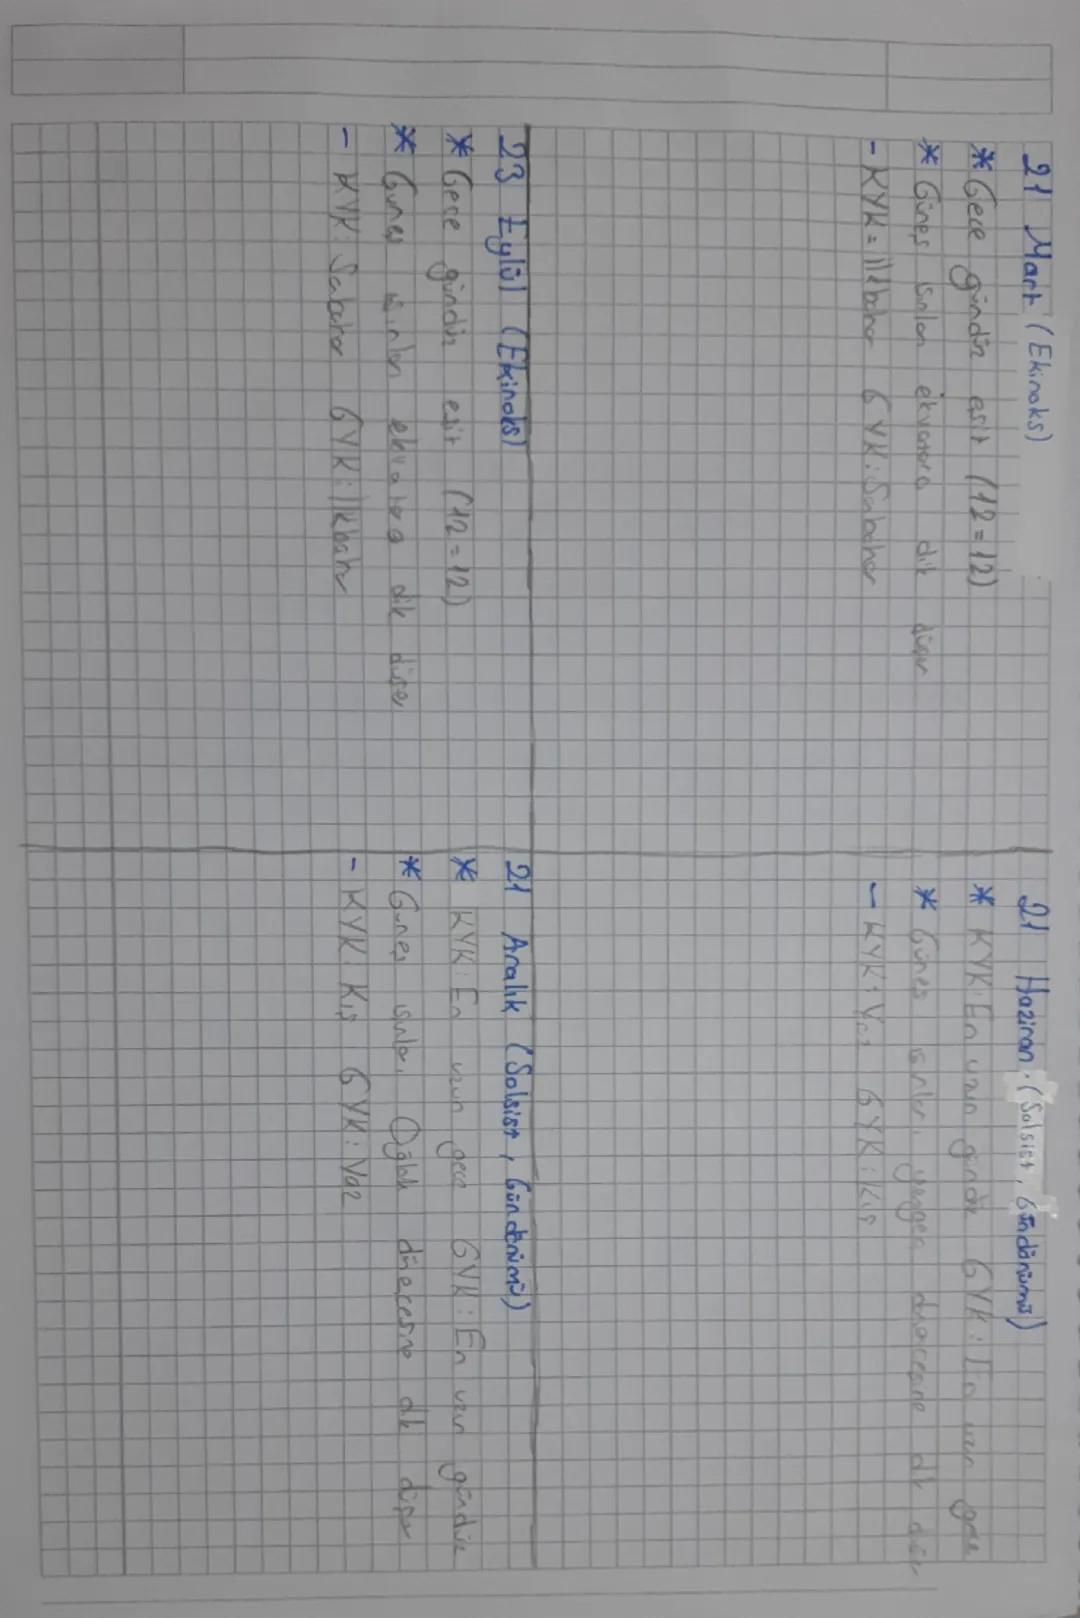 21 Mart (Ekinoks)
* Gece gündüz eşit (12=12)
* Güneş ışınları ekvatora dik düşer
- KYK=İlkbahar GYK: Sonbahar
21 Haziran (Solsist, Gündönümü)
* KYK: En uzun gündüz GYK: En uzun gece
* Güneş ışınları yengeç dönencesine dik düşer
- KYK: Yaz GYK: Kış
23 Eylül (Ekinoks)
* Gece gündüz eşit (12=12)
* Güneş ışınları ekvatora dik düşer
- KYK: Sonbahar GYK: İlkbahar
21 Aralık (Solsist, Gündönümü)
* KYK: En uzun gece GYK: En uzun gündüz
* Güneş ışınları Oğlak dönencesine dik düşer
- KYK: Kış GYK: Yaz